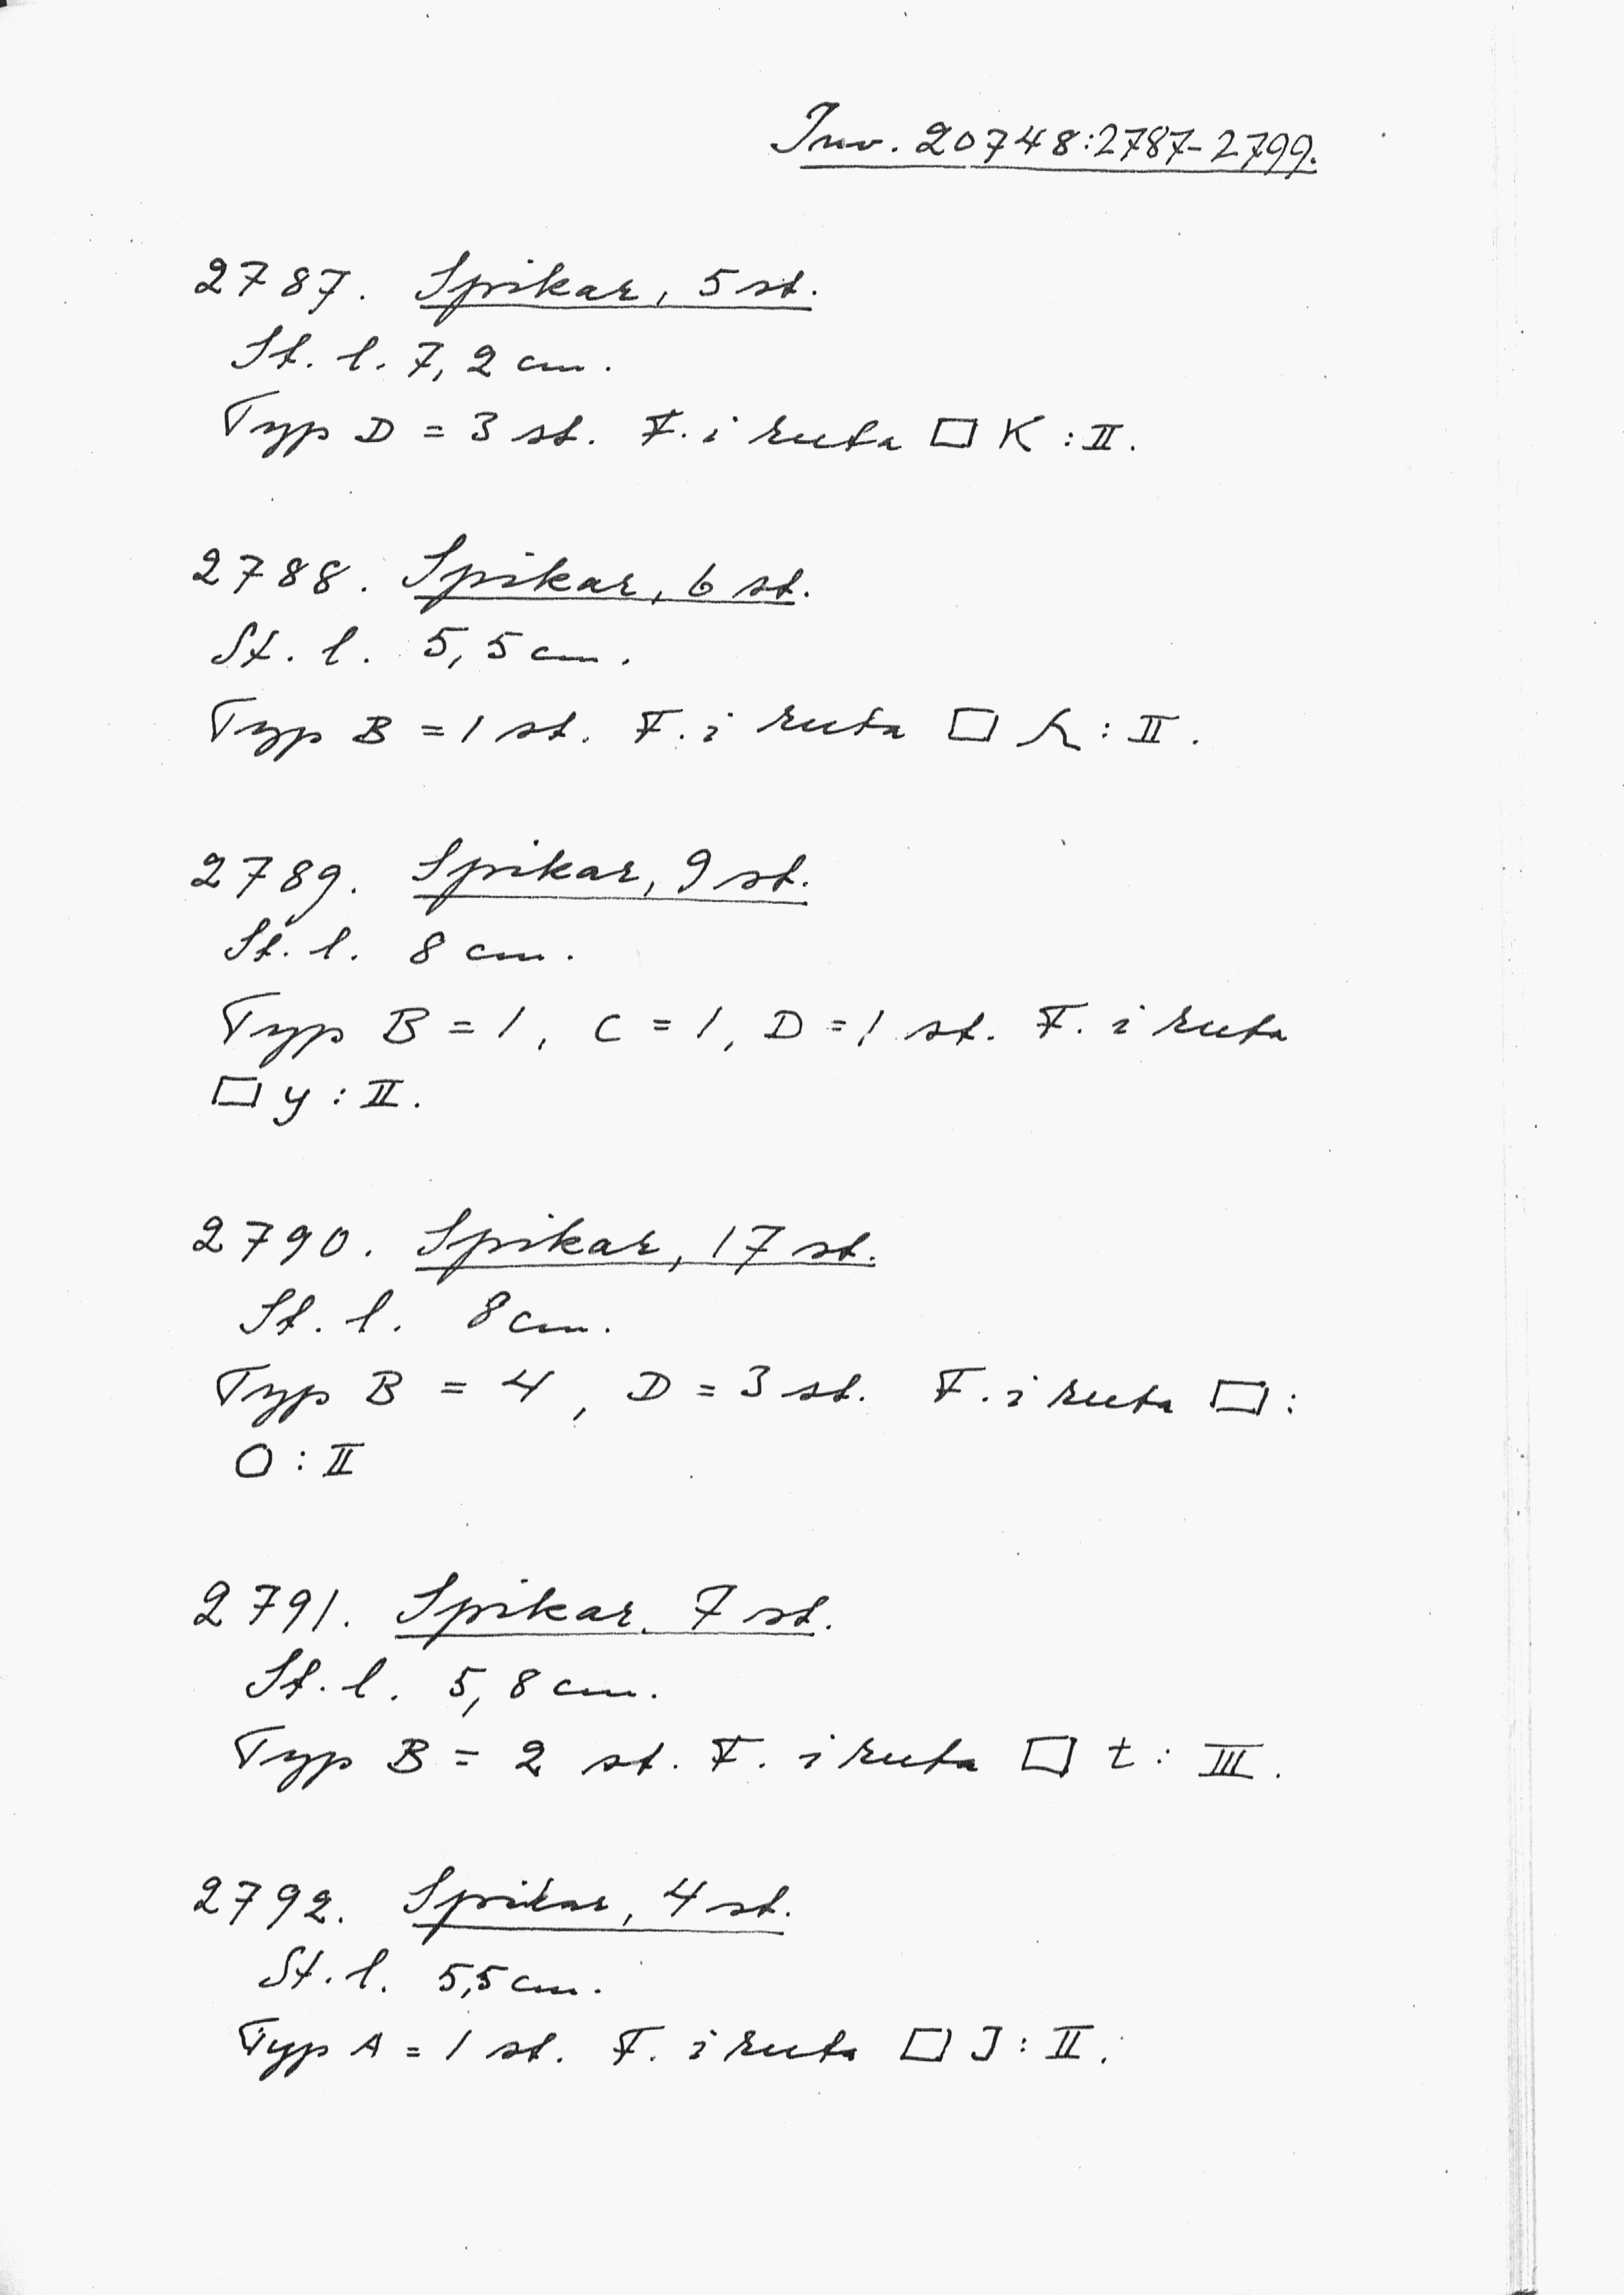 Inv. 20748:2787-2799.
2787. Spikar, 5 st.
St. l. 7,2 cm.
Typ D = 3 st. F. i ruta □ K : II.
2788. Spikar, 6 st.
St. l. 5,5 cm.
Typ B = 1 st. F. i ruta □ h : II.
2789. Spikar, 9 st.
St. l. 8 cm.
Typ B = 1, C = 1, D = 1 st. F. i ruta
□ y : II.
2790. Spikar, 17 st.
St. l. 8 cm.
Typ B = 4, D = 3 st. F. i ruta □ :
O : II
2791. Spikar, 7 st.
St. l. 5,8 cm.
Typ B = 2 st. F. i ruta □ t : III.
2792. Spikar, 4 st.
St. l. 5,5 cm.
Typ A = 1 st. F. i ruta □ J : II.